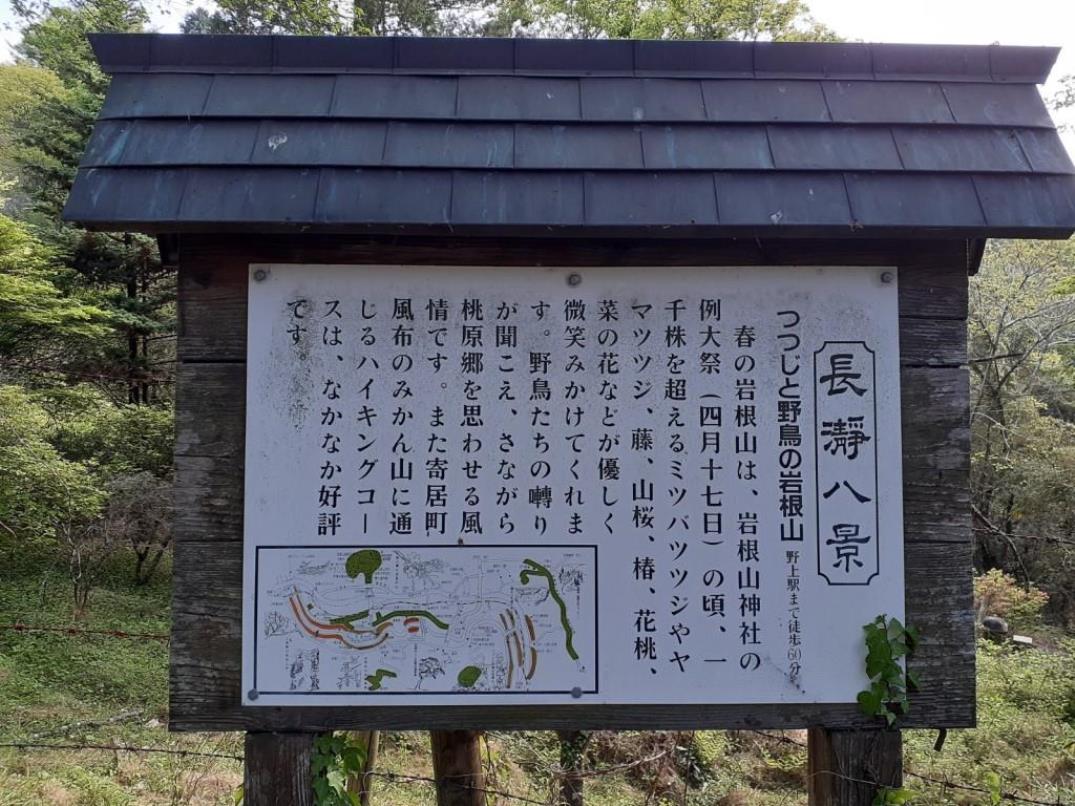 長瀞八景
つつじと野鳥の岩根山
野上駅まで徒歩60分
春の岩根山は、岩根山神社の
例大祭(四月十七日)の頃、一
千株を超えるミツバツツジやヤ
マツツジ、藤、山桜、椿、花桃、
菜の花などが優しく
微笑みかけてくれま
す。野鳥たちの囀り
が聞こえ、さながら
桃原郷を思わせる風
情です。また寄居町
風布のみかん山に通
じるハイキングコー
スは、なかなか好評
です。